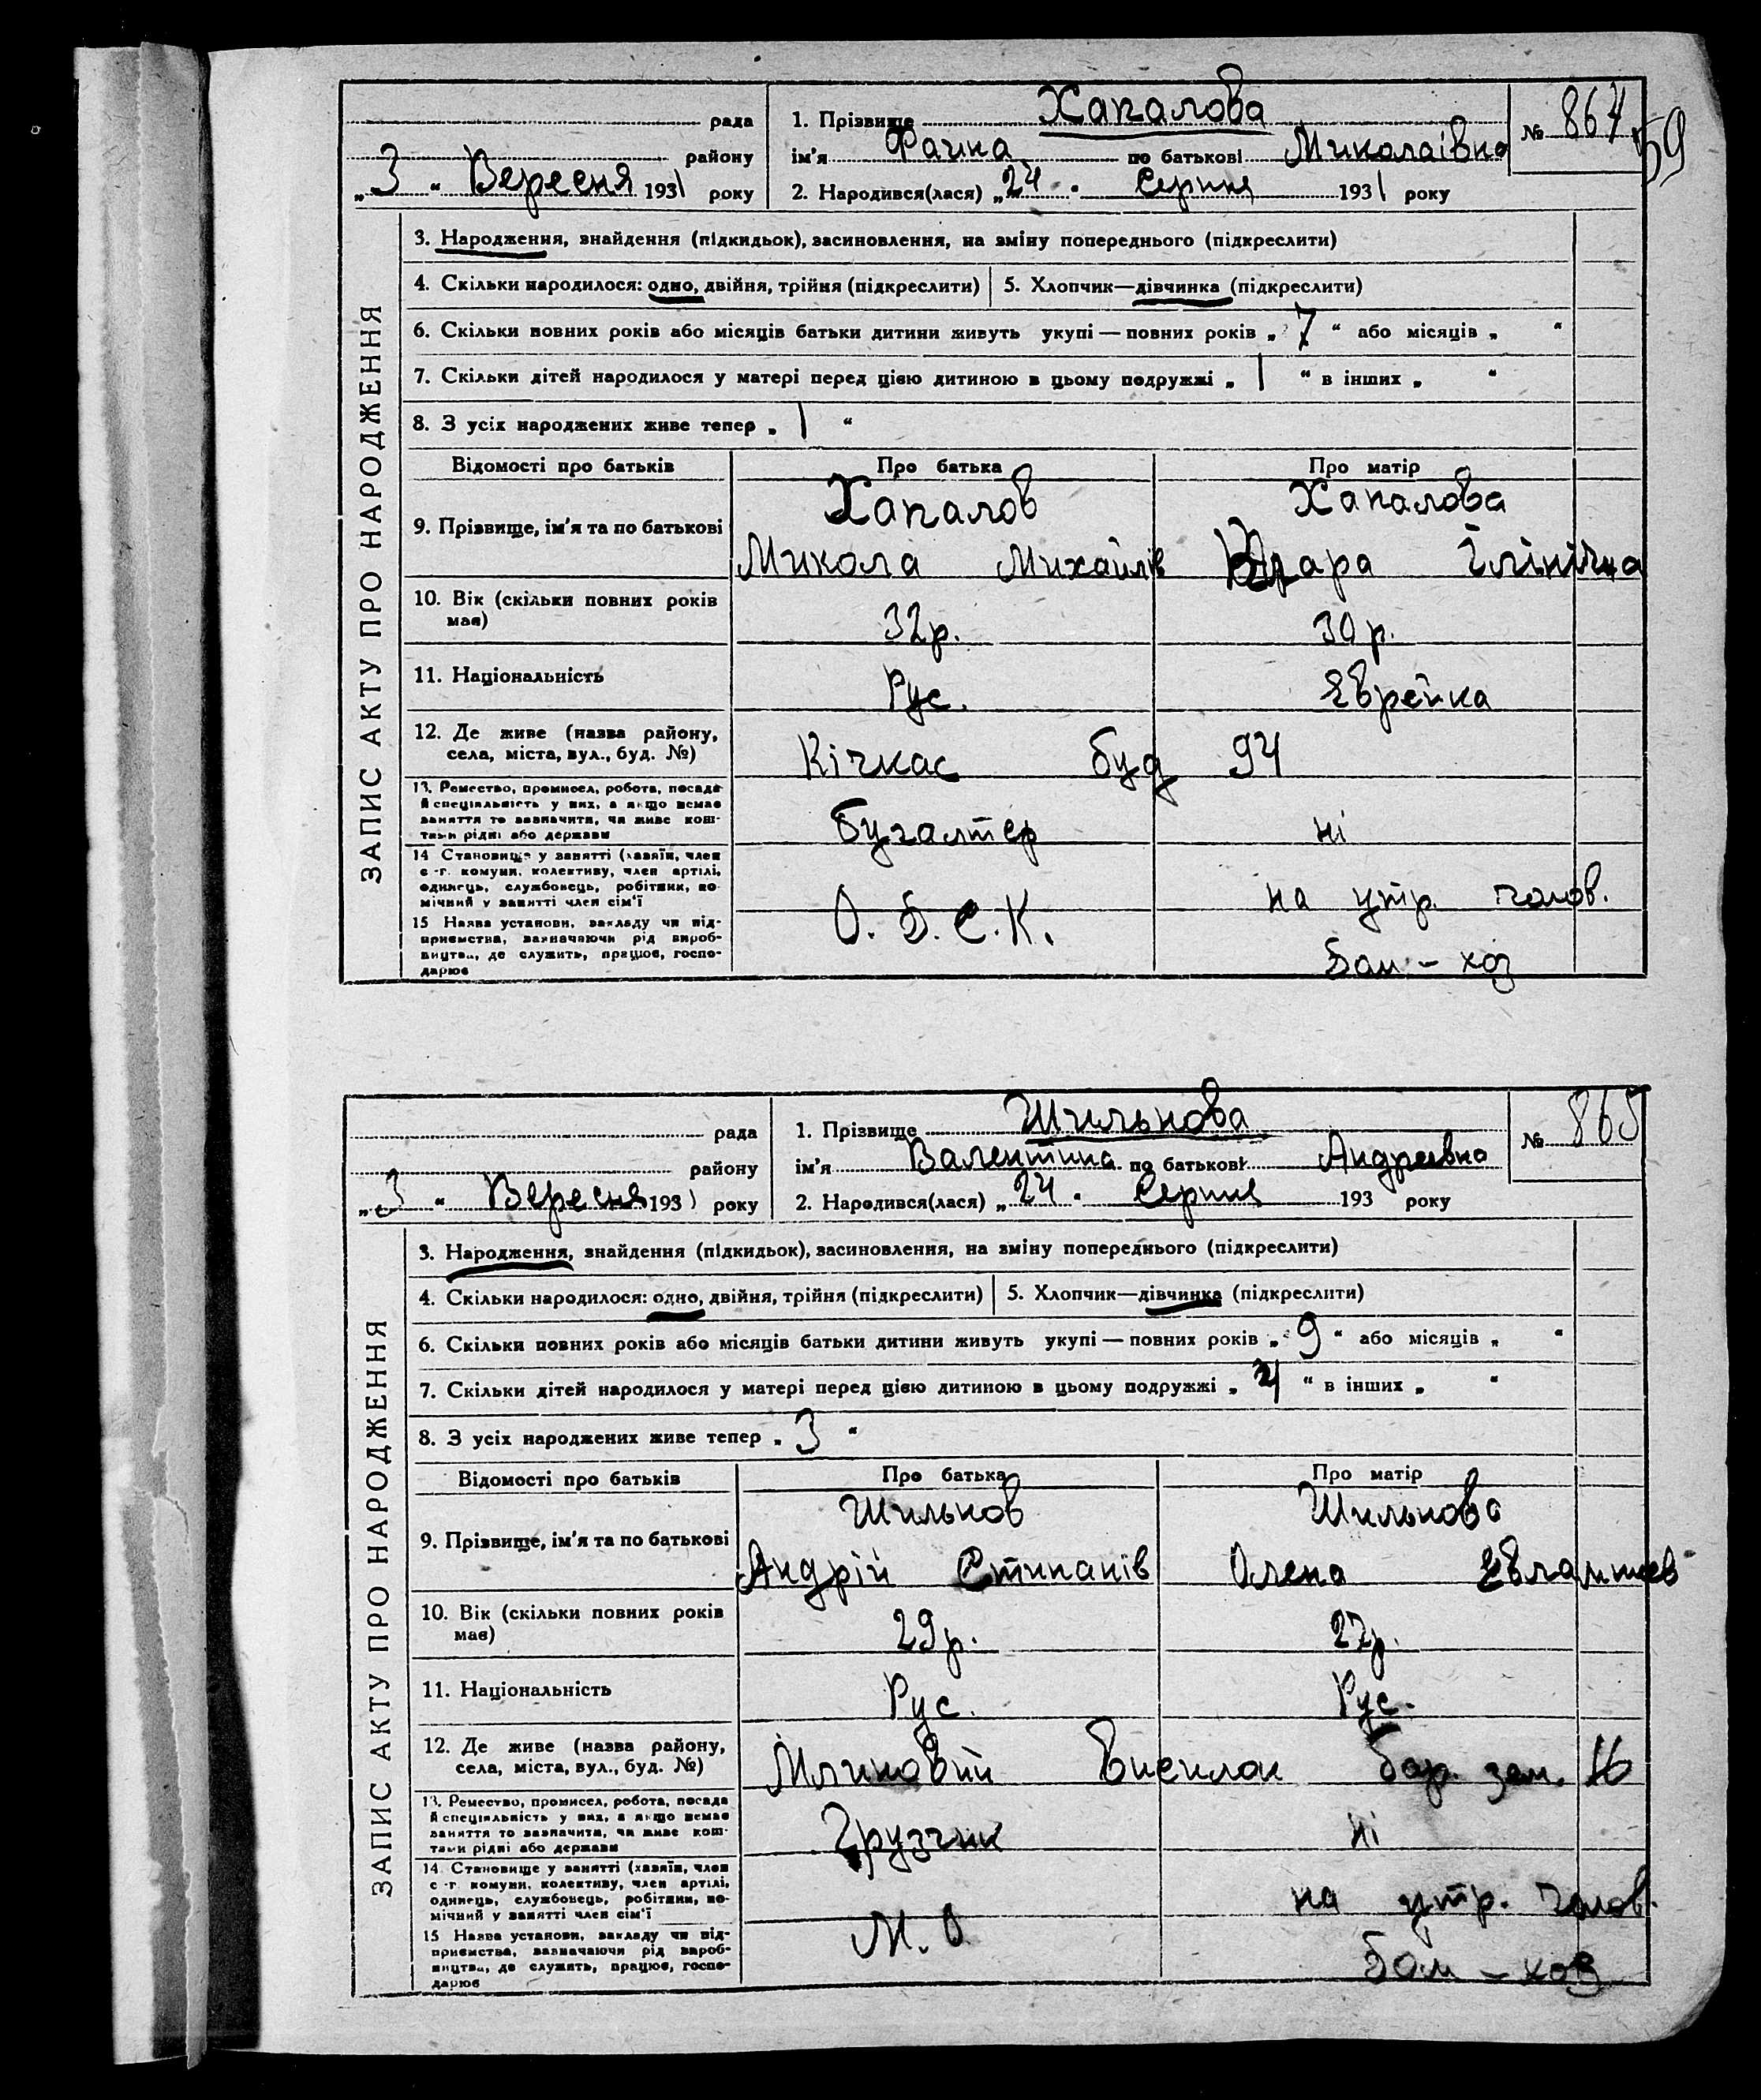 рада
району
„3" Вересня 1931 року
1. Прізвище Хапалова
ім'я Фаина по батькові Миколаівна
2. Народився(лася) „24" Серпня 1931 року
№ 864
59
ЗАПИС АКТУ ПРО НАРОДЖЕННЯ
3. Народження, знайдення (підкидьок), засиновлення, на зміну попереднього (підкреслити)
4. Скільки народилося: одно, двійня, трійня (підкреслити) 5. Хлопчик—дівчинка (підкреслити)
6. Скільки повних років або місяців батьки дитини живуть укупі — повних років „7" або місяців „ "
7. Скільки дітей народилося у матері перед цією дитиною в цьому подружжі „1" в інших „ "
8. З усіх народжених живе тепер „1"
Відомості про батьків Про батька Про матір
9. Прізвище, ім'я та по батькові
Хапалов
Микола Михайлів
Хапалова
Ілінічна
10. Вік (скільки повних років має) 32р. 30р.
11. Національність Рус. Єврейка
12. Де живе (назва району, села, міста, вул., буд. №) Кічкас буд 94
13. Ремество, промисел, робота, посада й спеціяльність у них, а якщо немає заняття то зазначити, чи живе коштами рідні або держави
Бугалтер ні
14 Становище у занятті (хазяїн, член с.-г. комуни, колективу, член артілі, одинець, службовець, робітник, помічний у занятті член сім'ї
на утр. чолов.
15 Назва установи, закладу чи підприємства, зазначаючи рід виробництва, де служить, працює, господарює
О. Б. С. К.
Дом - хоз
рада
району
„3" Вересня 1931 року
1. Прізвище Шильнова
ім'я Валентина по батькові Андреівна
2. Народився(лася) „24" Серпня 193 року
№ 865
ЗАПИС АКТУ ПРО НАРОДЖЕННЯ
3. Народження, знайдення (підкидьок), засиновлення, на зміну попереднього (підкреслити)
4. Скільки народилося: одно, двійня, трійня (підкреслити) 5. Хлопчик—дівчинка (підкреслити)
6. Скільки повних років або місяців батьки дитини живуть укупі — повних років „9" або місяців „ "
7. Скільки дітей народилося у матері перед цією дитиною в цьому подружжі „ " в інших „ "
8. З усіх народжених живе тепер „3"
Відомості про батьків Про батька Про матір
9. Прізвище, ім'я та по батькові
Шильнов
Андрій Стипанів
Шильнова
Олена
10. Вік (скільки повних років має) 29р. 27р.
11. Національність Рус. Рус.
12. Де живе (назва району, села, міста, вул., буд. №) Млиновий Висилок бар. зем. 16
13. Ремество, промисел, робота, посада й спеціяльність у них, а якщо немає заняття то зазначити, чи живе коштами рідні або держави
Грузчик ні
14. Становище у занятті (хазяїн, член с.-г. комуни, колективу, член артілі, одинець, службовець, робітник, помічний у занятті член сім'ї
на утр. чолов.
15 Назва установи, закладу чи підприємства, зазначаючи рід виробництва, де служить, працює, господарює
М. О
Дом - хоз